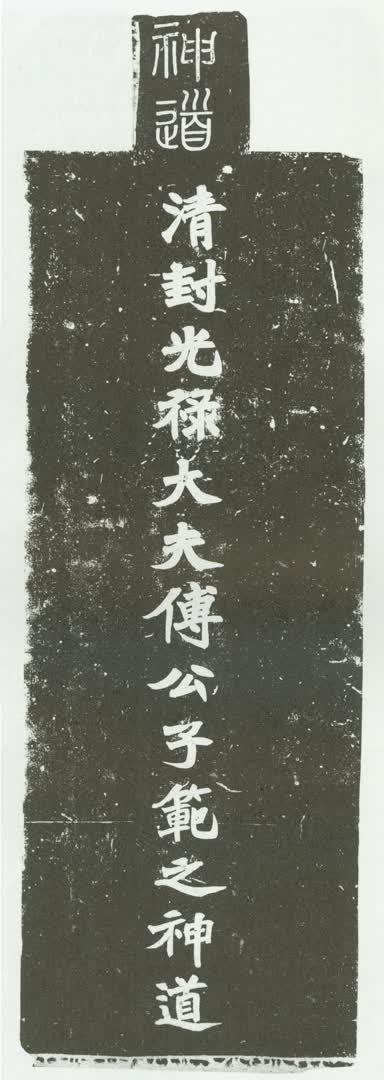 神道
清封光祿大夫傅公子範之神道